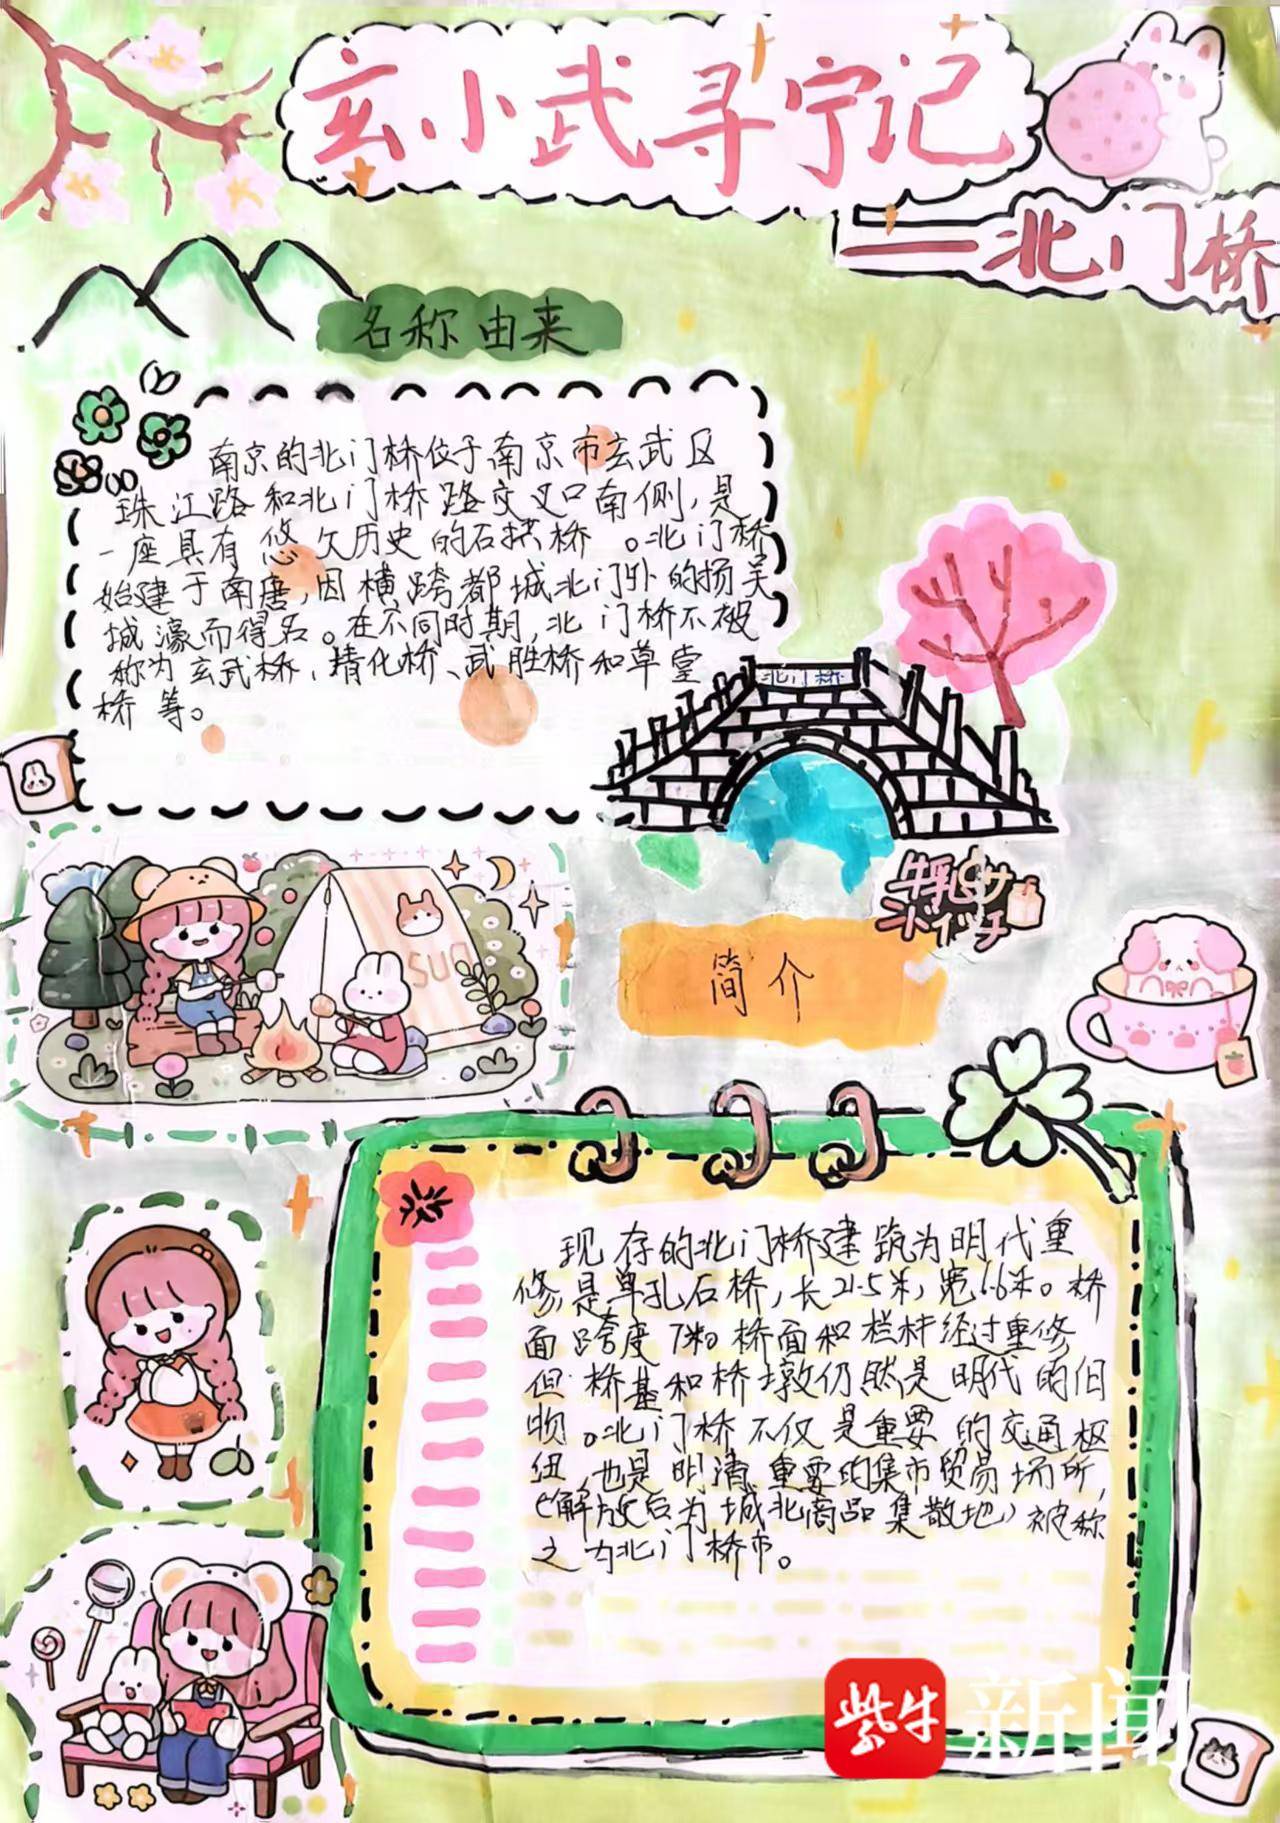 玄小武寻宁记
——北门桥
名称由来
南京的北门桥位于南京市玄武区
珠江路和北门桥路交叉口南侧,是
一座具有悠久历史的石拱桥。北门桥
始建于南唐,因横跨都城北门外的扬吴
城濠而得名。在不同时期,北门桥不被
称为玄武桥、精化桥、武胜桥和草堂
桥等。
北门桥
牛乳サ
ンドイッチ
SUO
简介
现存的北门桥建筑为明代重
修,是单孔石桥,长21.5米,宽6.6米。桥
面跨度7米。桥面和栏杆经过重修
但桥基和桥墩仍然是明代的旧
物。北门桥不仅是重要的交通枢
纽,也是明清重要的集市贸易场所,
(解放后为城北商品集散地)被称
之为北门桥市。
紫牛新闻